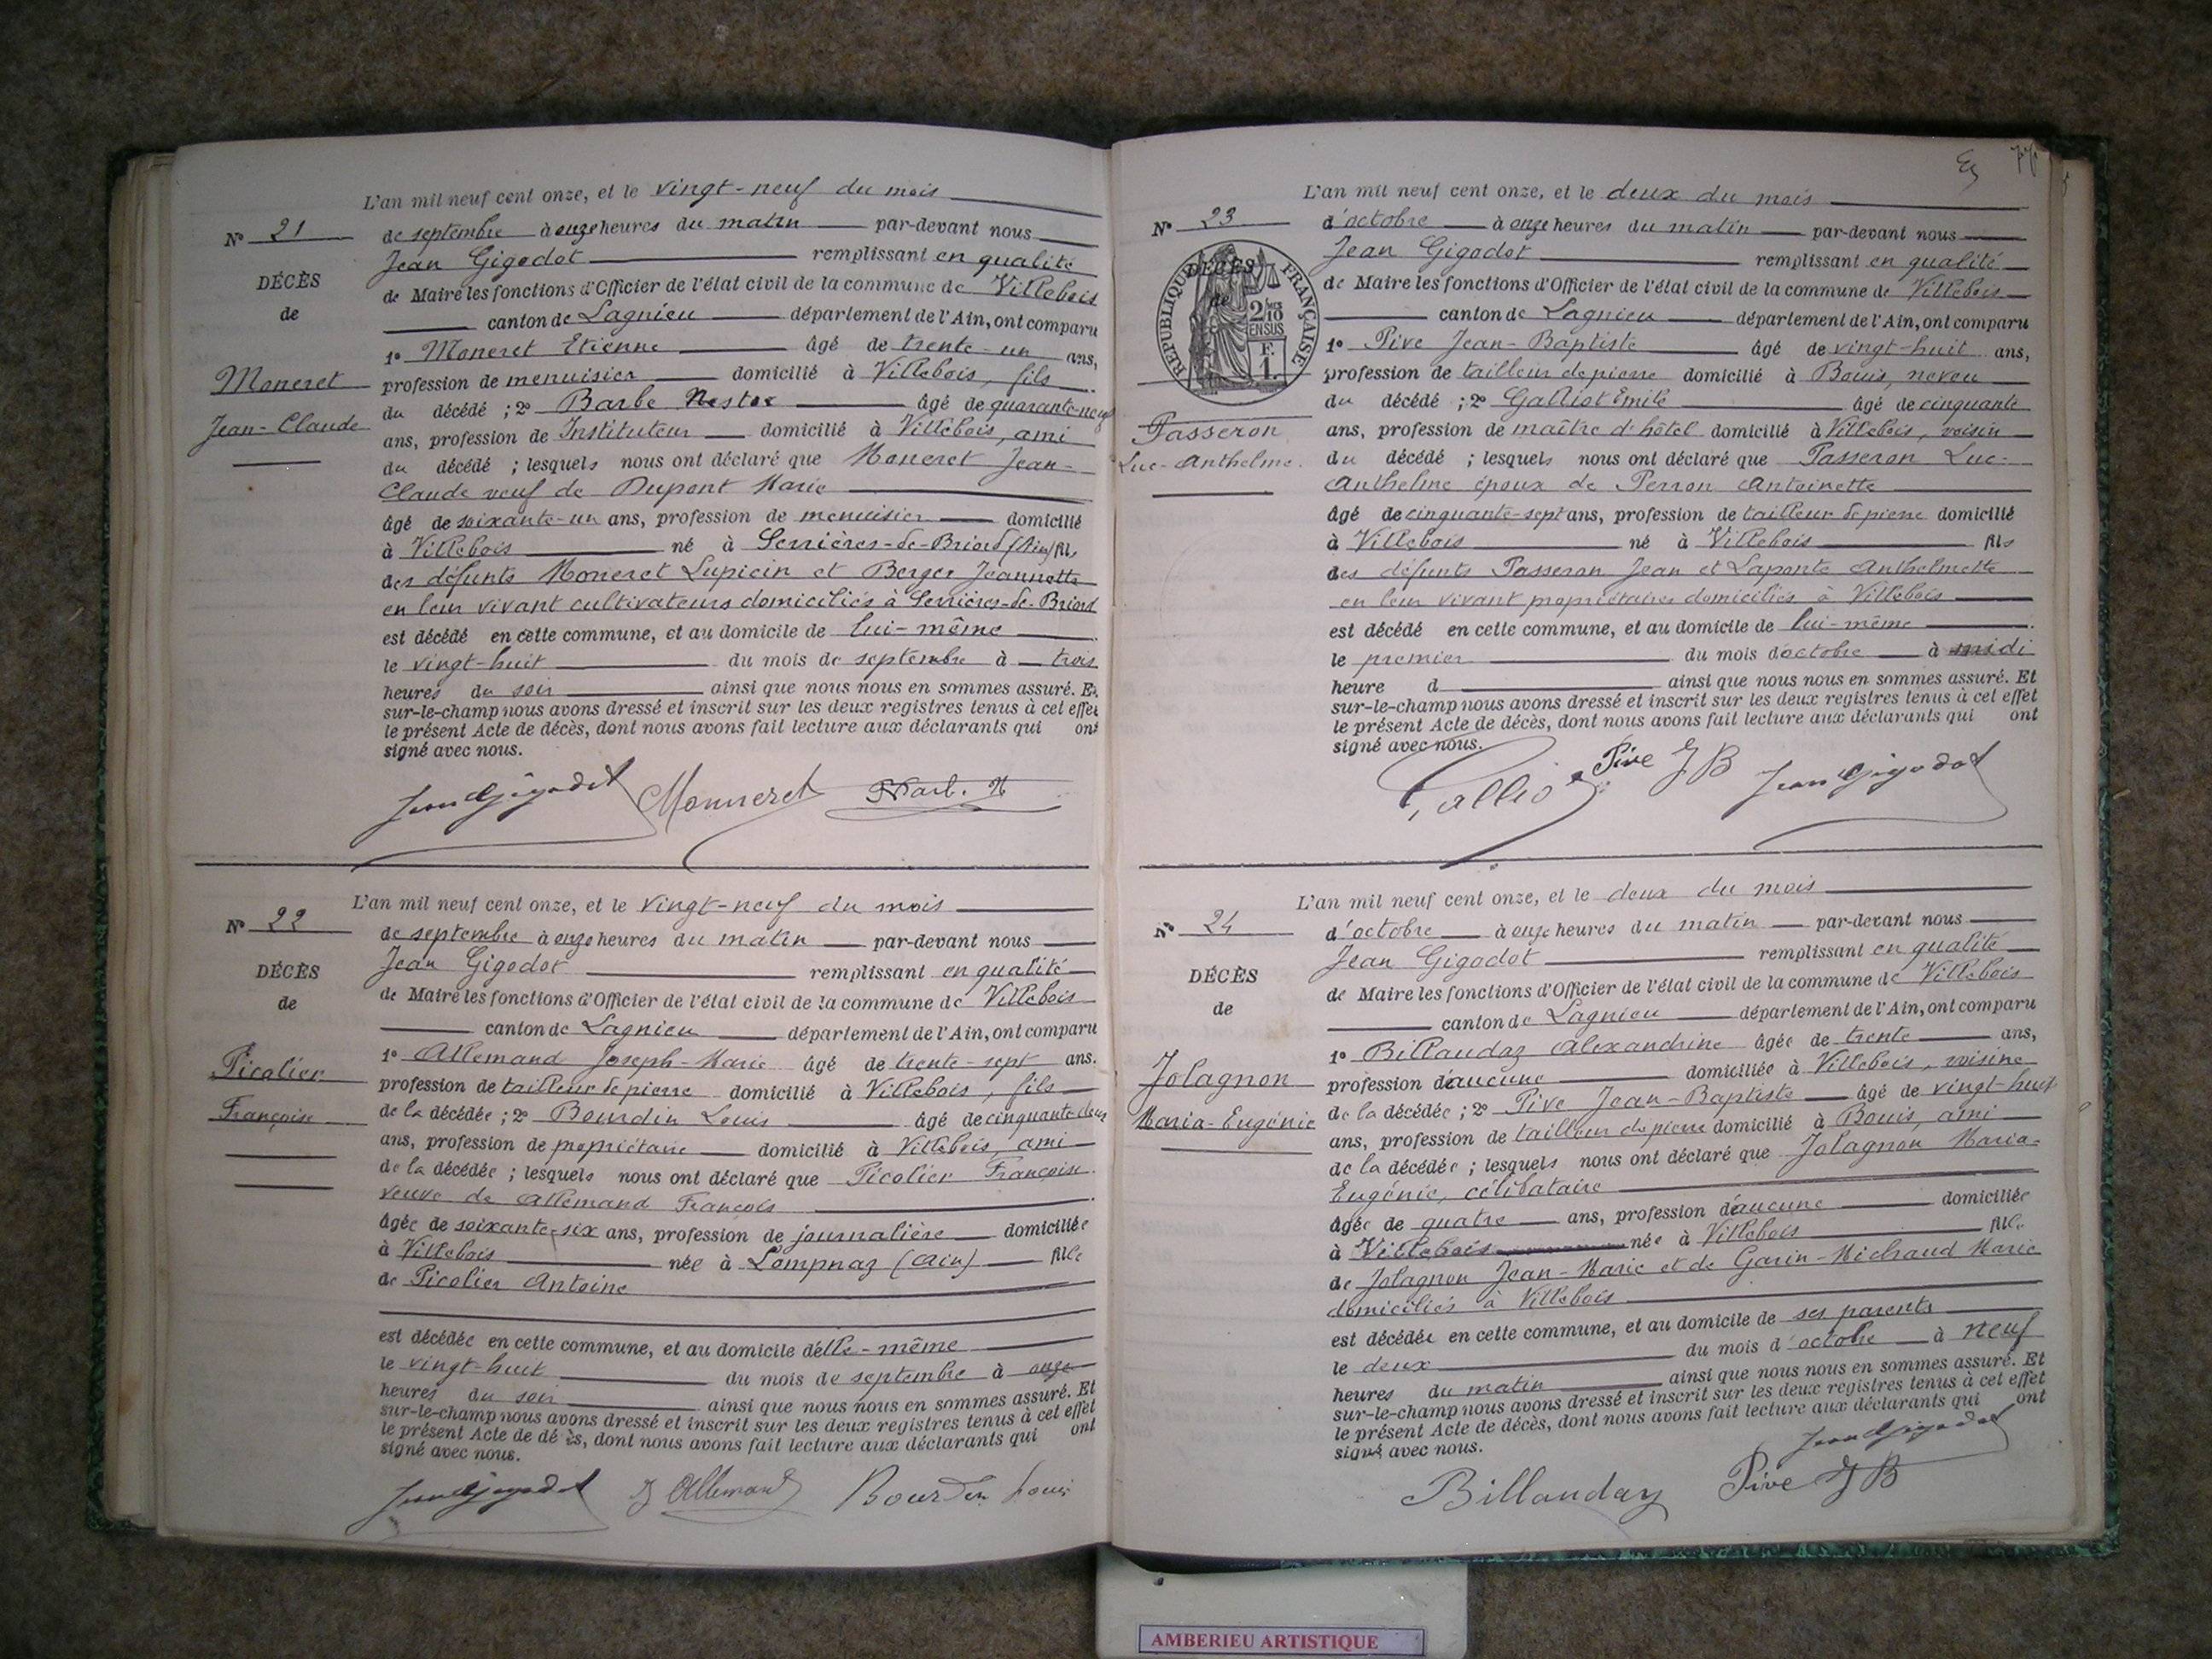 L'an mil neuf cent onze, et le vingt-neuf du mois
N° 21
de septembre à onze heures du matin par-devant nous
Jean Gigodot remplissant en qualité
DÉCÈS
de Maire les fonctions d'Officier de l'état civil de la commune de Villebois
de
canton de Lagnieu département de l'Ain, ont comparu
1° Moneret Etienne âgé de trente-un ans,
Moneret
profession de menuisier domicilié à Villebois, fils
du décédé ; 2° Barbe Nestor âgé de quarante-neuf
Jean-Claude
ans, profession de Instituteur domicilié à Villebois, ami
du décédé ; lesquels nous ont déclaré que Moneret Jean-
Claude veuf de Dupont Marie
âgé de soixante-un ans, profession de menuisier domicilié
à Villebois né à Serrières-de-Briord (Ain) fils
des défunts Moneret Lupicin et Berger Jeannette
en leur vivant cultivateurs domiciliés à Serrières-de-Briord
est décédé en cette commune, et au domicile de lui-même
le vingt-huit du mois de septembre à trois
heures du soir ainsi que nous nous en sommes assuré. Et
sur-le-champ nous avons dressé et inscrit sur les deux registres tenus à cet effet
le présent Acte de décès, dont nous avons fait lecture aux déclarants qui ont
signé avec nous.
Jean Gigodot Monneret Barbe N
L'an mil neuf cent onze, et le vingt-neuf du mois
N° 22
de septembre à onze heures du matin par-devant nous
Jean Gigodot remplissant en qualité
DÉCÈS
de Maire les fonctions d'Officier de l'état civil de la commune de Villebois
de
canton de Lagnieu département de l'Ain, ont comparu
1° Allemand Joseph-Marie âgé de trente-sept ans.
Picolier
profession de tailleur de pierre domicilié à Villebois, fils
Françoise
de la décédée ; 2° Bourdin Louis âgé de cinquante-deux
ans, profession de propriétaire domicilié à Villebois, ami
de la décédée ; lesquels nous ont déclaré que Picolier Françoise
veuve de Allemand François
âgée de soixante-six ans, profession de journalière domiciliée
à Villebois née à Lompnaz (Ain) fille
de Picolier Antoine
est décédée en cette commune, et au domicile d'elle-même
le vingt-huit du mois de septembre à onze
heures du soir ainsi que nous nous en sommes assuré. Et
sur-le-champ nous avons dressé et inscrit sur les deux registres tenus à cet effet
le présent Acte de dé ès, dont nous avons fait lecture aux déclarants qui ont
signé avec nous.
Jean Gigodot J Allemand Bourdin Louis
L'an mil neuf cent onze, et le deux du mois
N° 23
d'octobre à onze heures du matin par-devant nous
Jean Gigodot remplissant en qualité
DÉCÈS
de
RÉPUBLIQUE FRANÇAISE
2/10 EN SUS
F.
1.
de Maire les fonctions d'Officier de l'état civil de la commune de Villebois
canton de Lagnieu département de l'Ain, ont comparu
1° Pive Jean-Baptiste âgé de vingt-huit ans,
profession de tailleur de pierre domicilié à Bouis, neveu
du décédé ; 2° Galliot Emile âgé de cinquante
Passeron
ans, profession de maître d'hôtel domicilié à Villebois, voisin
Luc-Anthelme.
du décédé ; lesquels nous ont déclaré que Passeron Luc-
Anthelme époux de Perron Antoinette
âgé de cinquante-sept ans, profession de tailleur de pierre domicilié
à Villebois né à Villebois fils
des défunts Passeron Jean et Laponte Anthelmette
en leur vivant propriétaires domiciliés à Villebois
est décédé en cette commune, et au domicile de lui-même
le premier du mois d'octobre à midi
heure d ainsi que nous nous en sommes assuré. Et
sur-le-champ nous avons dressé et inscrit sur les deux registres tenus à cet effet
le présent Acte de décès, dont nous avons fait lecture aux déclarants qui ont
signé avec nous.
Galliot Pive JB Jean Gigodot
L'an mil neuf cent onze, et le deux du mois
N° 24
d'octobre à onze heures du matin par-devant nous
Jean Gigodot remplissant en qualité
DÉCÈS
de Maire les fonctions d'Officier de l'état civil de la commune de Villebois
de
canton de Lagnieu département de l'Ain, ont comparu
1° Billaudaz Alexandrine âgée de trente ans,
Jolagnon
profession d'aucune domiciliée à Villebois, voisine
de la décédée ; 2° Pive Jean-Baptiste âgé de vingt-huit
Maria-Eugénie
ans, profession de tailleur de pierre domicilié à Bouis, ami
de la décédée ; lesquels nous ont déclaré que Jolagnon Maria-
Eugénie, célibataire
âgée de quatre ans, profession d'aucune domiciliée
à Villebois née à Villebois fille
de Jolagnon Jean-Marie et de Garin-Michaud Marie
domiciliés à Villebois
est décédée en cette commune, et au domicile de ses parents
le deux du mois d'octobre à neuf
heures du matin ainsi que nous nous en sommes assuré. Et
sur-le-champ nous avons dressé et inscrit sur les deux registres tenus à cet effet
le présent Acte de décès, dont nous avons fait lecture aux déclarants qui ont
signé avec nous.
Jean Gigodot
Billaudaz Pive JB
AMBERIEU ARTISTIQUE